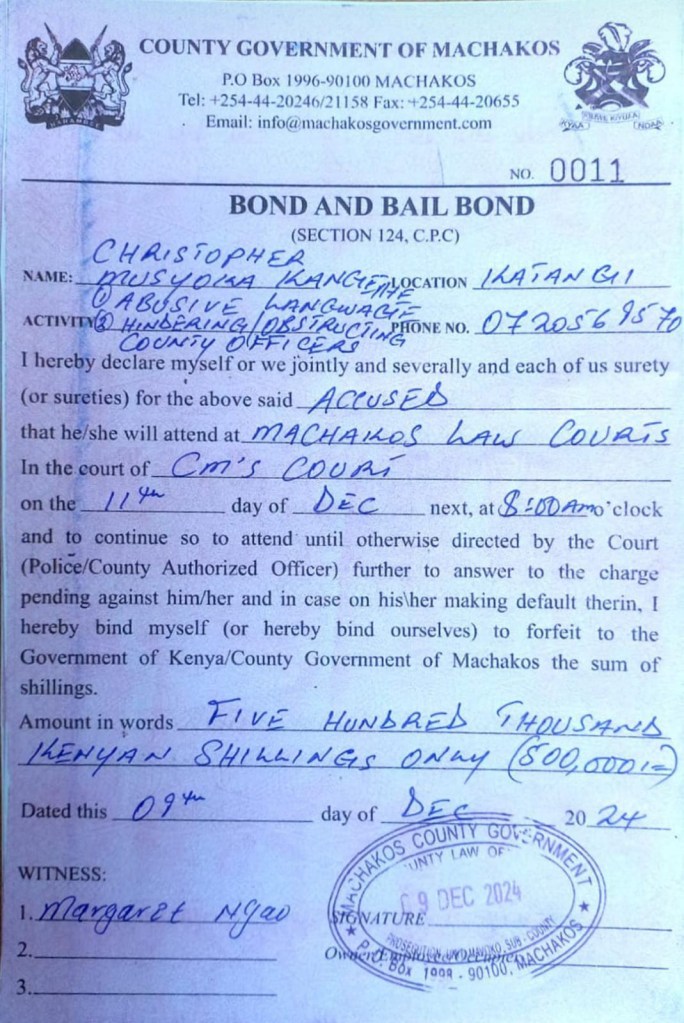 COUNTY GOVERNMENT OF MACHAKOS
P.O Box 1996-90100 MACHAKOS
Tel: +254-44-20246/21158 Fax: +254-44-20655
Email: info@machakosgovernment.com
NO. 0011
BOND AND BAIL BOND
(SECTION 124, C.P.C)
CHRISTOPHER
NAME: MUSYOKA LOCATION KATANGI
① ABUSIVE LANGWAGE
ACTIVITY ② HINDERING/OBSTRUCTING PHONE NO. 0720569570
COUNTY OFFICERS
I hereby declare myself or we jointly and severally and each of us surety
(or sureties) for the above said ACCUSED
that he/she will attend at MACHAKOS LAW COURTS
In the court of CM'S COURT
on the 11th day of DEC next, at 8:00AM o'clock
and to continue so to attend until otherwise directed by the Court
(Police/County Authorized Officer) further to answer to the charge
pending against him/her and in case on his\her making default therin, I
hereby bind myself (or hereby bind ourselves) to forfeit to the
Government of Kenya/County Government of Machakos the sum of
shillings.
Amount in words FIVE HUNDRED THOUSAND
KENYAN SHILLINGS ONLY (500,000/=)
Dated this 09th day of DEC 2024
MACHAKOS COUNTY GOVERNMENT
09 DEC 2024
PROSECUTION UNIT MAVOKO, SUB - COUNTY
P.O. Box 1996 - 90100, MACHAKOS
WITNESS:
1. Margaret Ngao SIGNATURE
2. Owner/Employee/Occupier
3.